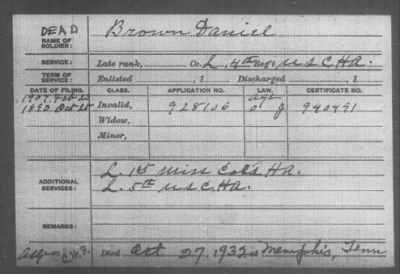 DEAD
NAME OF SOLDIER:
Brown Daniel
SERVICE:
Late rank, Co. L. 4th Reg't U S C H A.
TERM OF SERVICE:
Enlisted , 1 Discharged , 1
DATE OF FILING. CLASS. APPLICATION NO. LAW. CERTIFICATE NO.
1907. Feb
1890 Oct Invalid, 928106 J 940491
Widow,
Minor,
ADDITIONAL SERVICES:
L. 1st Miss Col'd H A.
L. 5th U S C. H A.
REMARKS:
C.W.
Died Oct 27, 1932 at Memphis, Tenn